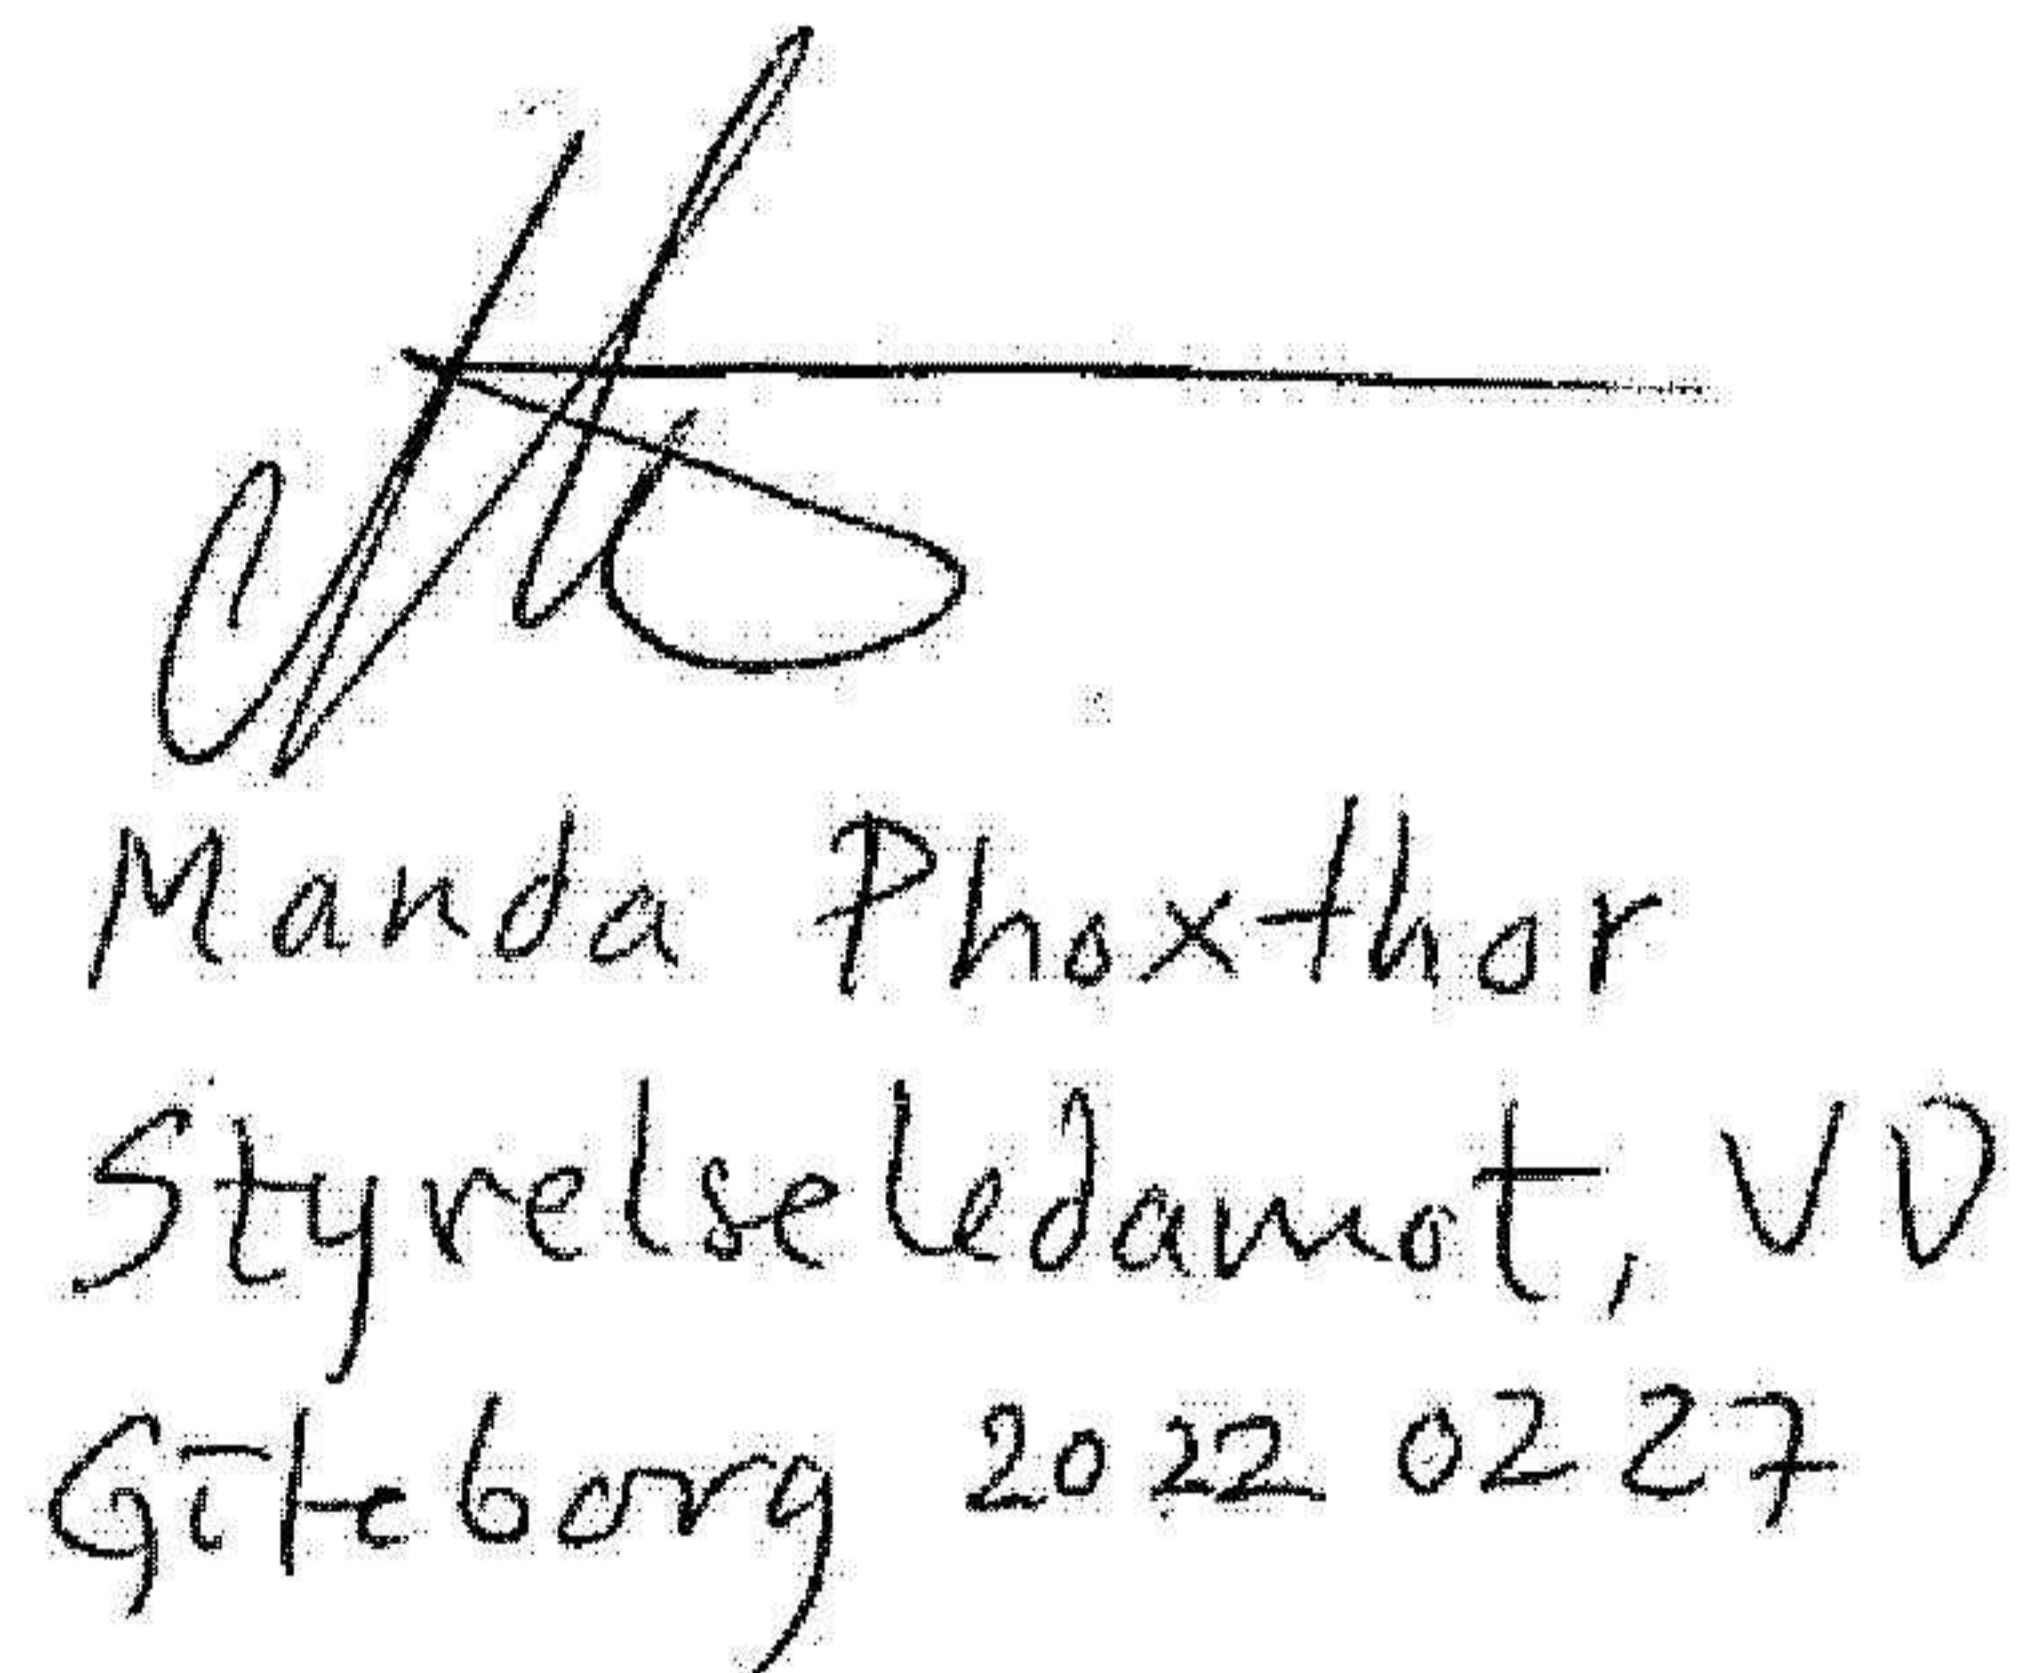 Manda Phoxthor
Styrelseledamot, VD
Göteborg 2022 02 27